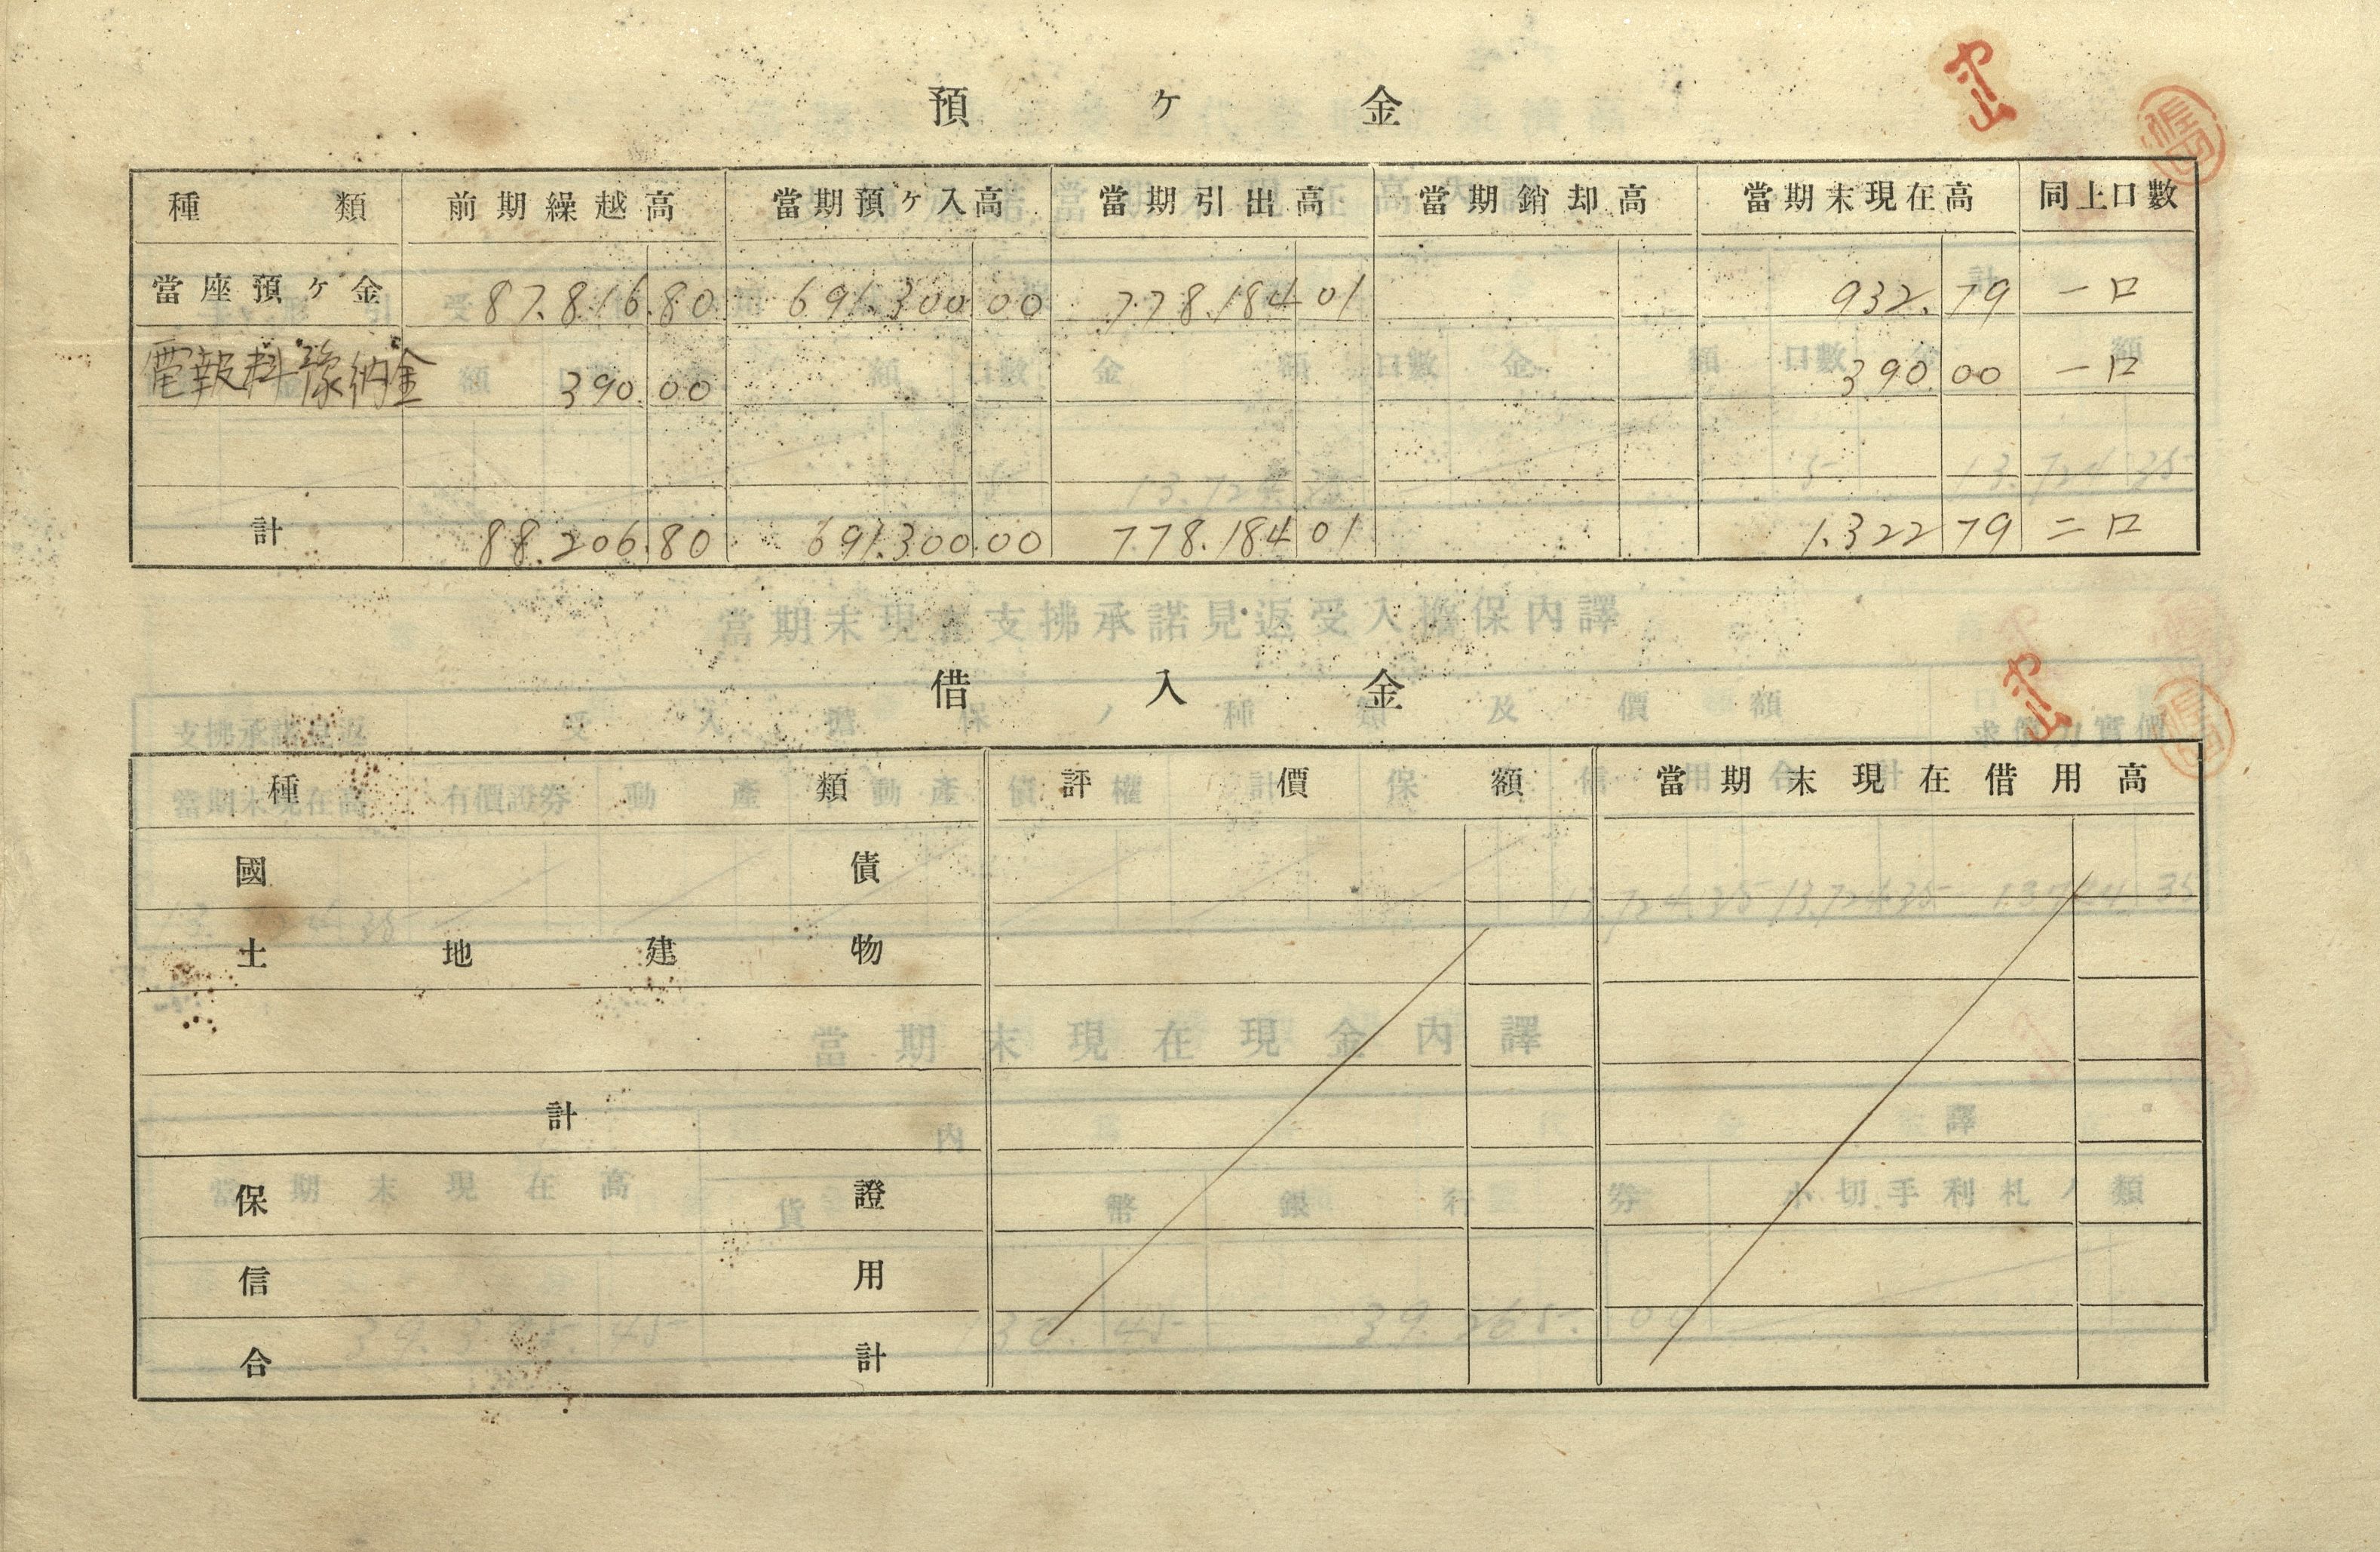 預ヶ金
種類 前期繰越高 當期預ヶ入高 當期引出高 當期銷却高 當期末現在高 同上口數
當座預ヶ金 87.816.80 691.300 00 778.184 01 932.79 一口
電報料豫納金 390.00 390.00 一口
計 88.206.80 691.300.00 778.184 01 1.322 79 二口
借入金
種類 評價額 當期末現在借用高
國債
土地建物
計
保證
信用
合計